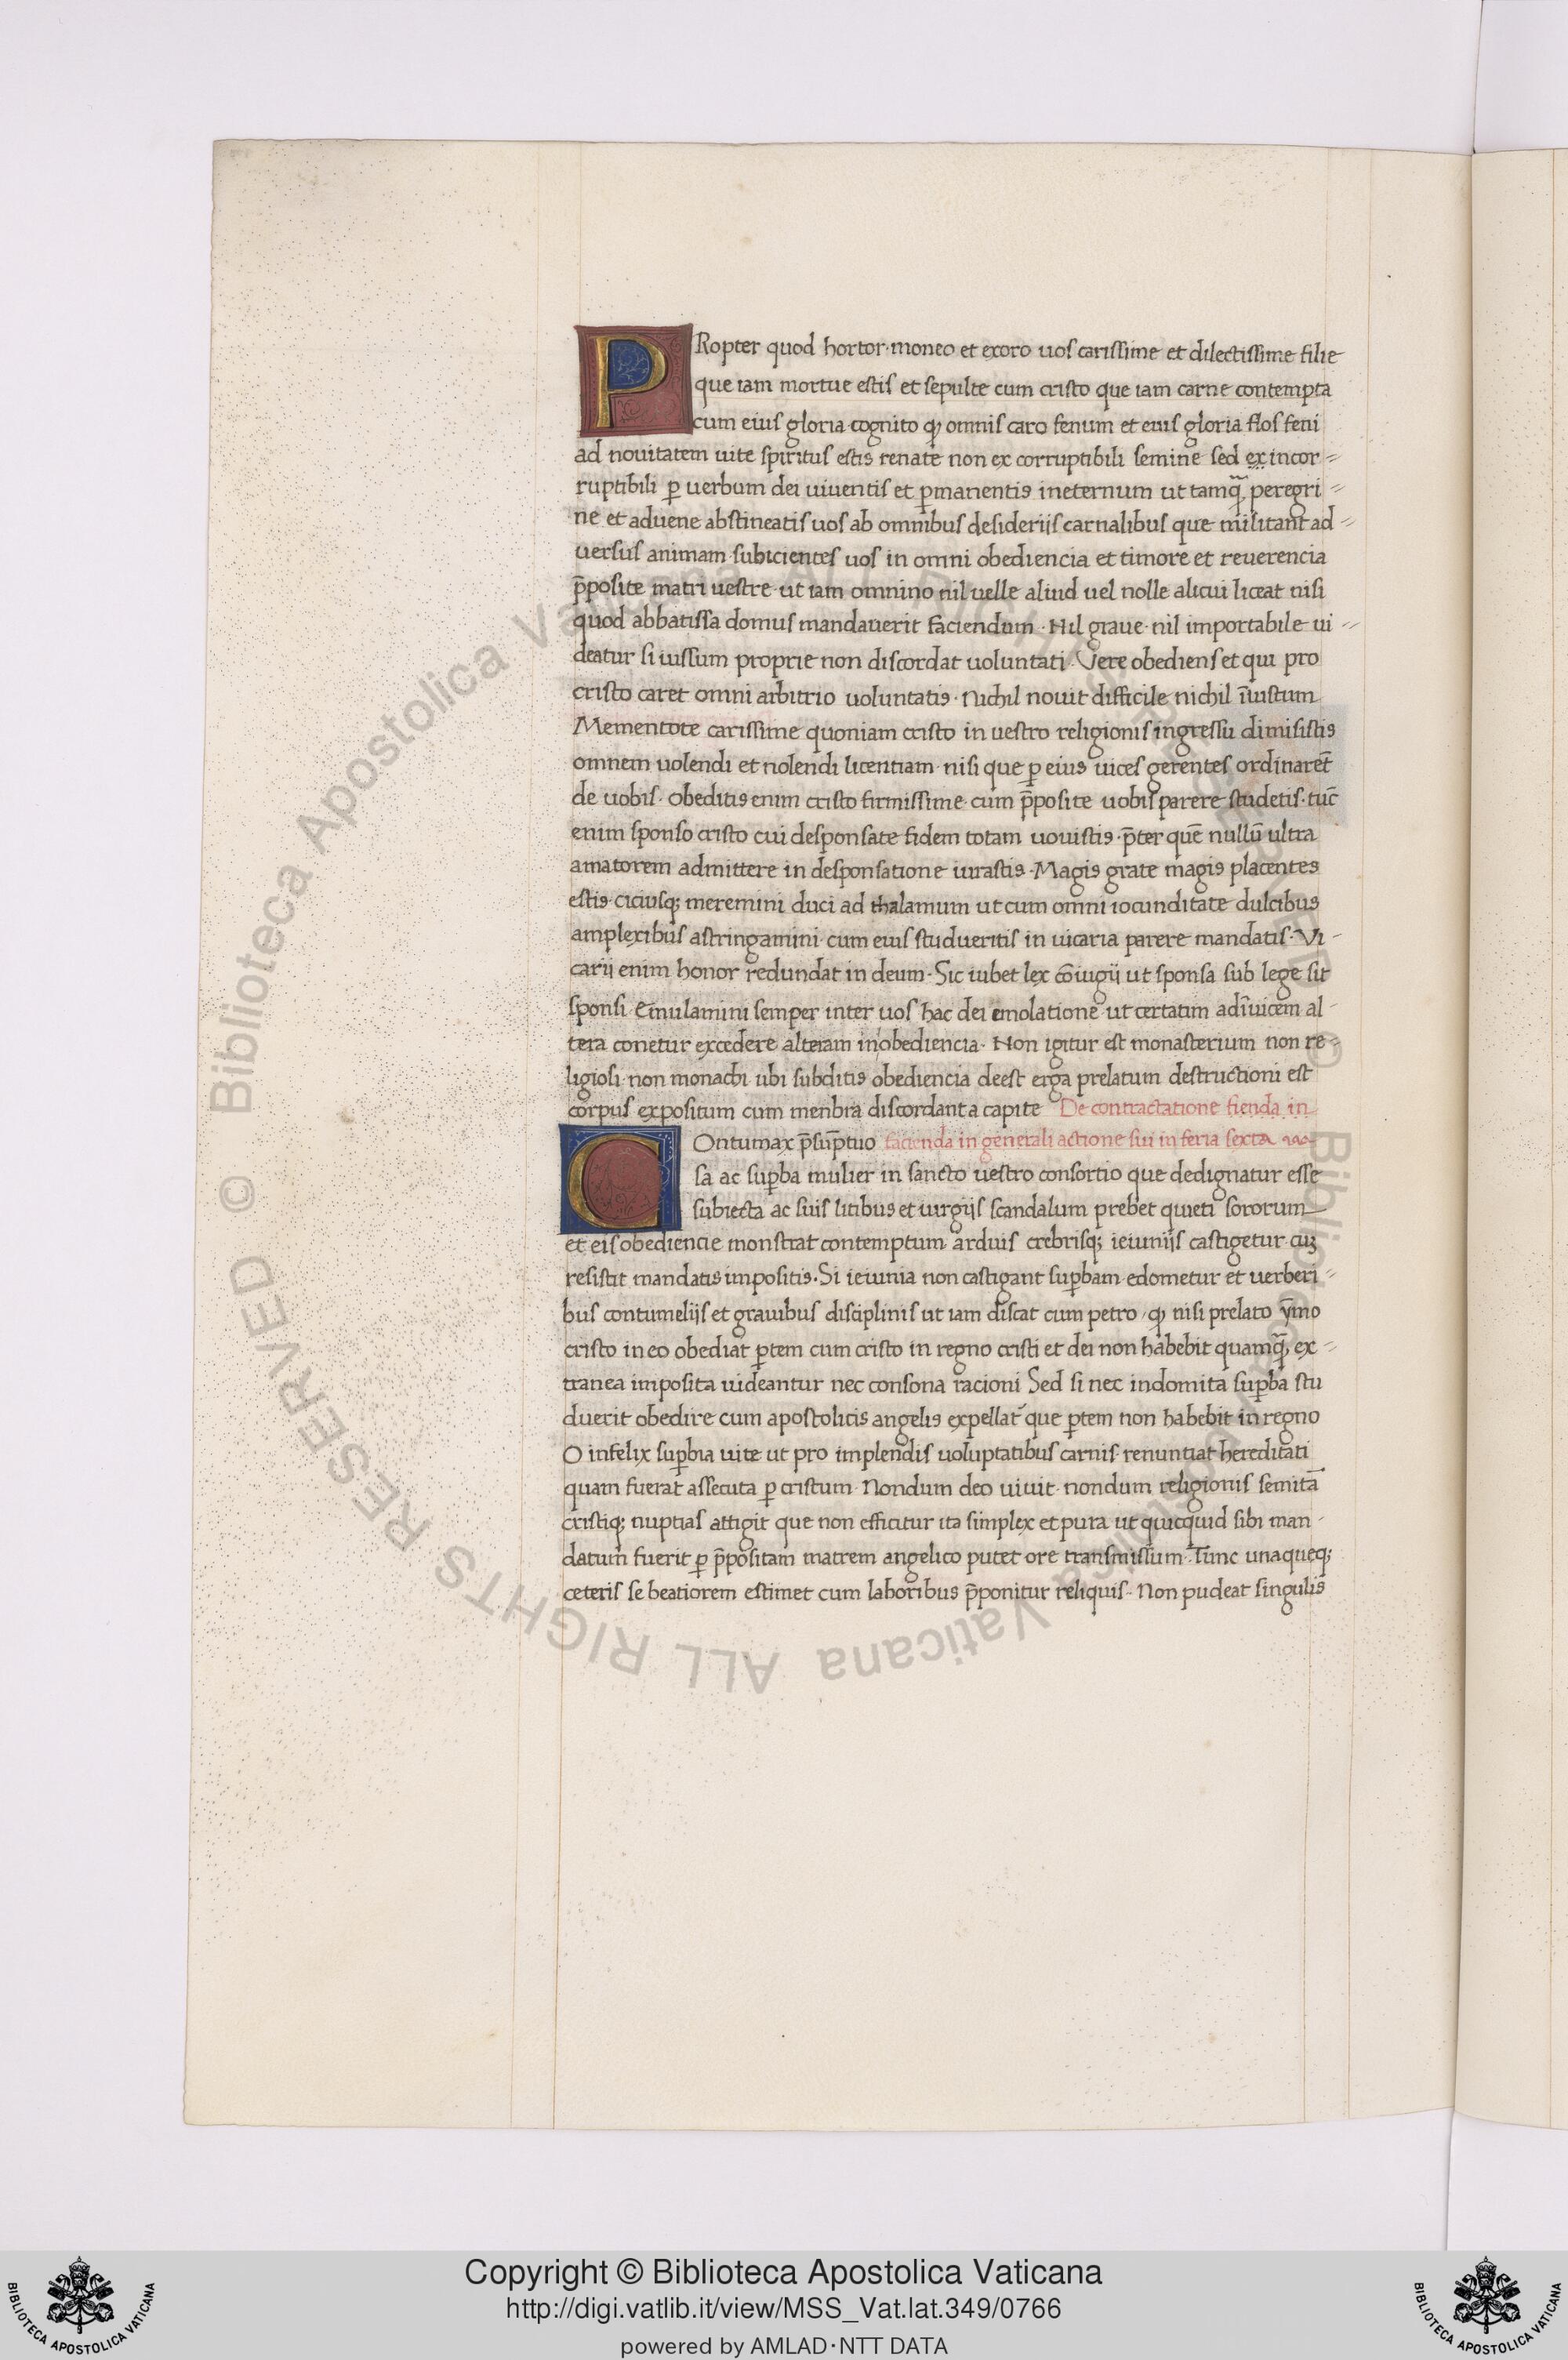 PRopter quod hortor·moneo et exoro uos carissime et dilectissime filie
que iam mortue estis et sepulte cum cristo que iam carne contempta
cum eius gloria cognito ꝙ omnis caro fenum et eius gloria flos feni
ad nouitatem uite spiritus estis renate non ex corruptibili semine sed ex incor=
ruptibili ꝑ uerbum dei uiuentis et ꝑmanentis ineternum ut tamq̃ peregri=
ne et aduene abstineatis uos ab omnibus desiderijs carnalibus que militant ad=
uersus animam·subicientes uos in omni obediencia et timore et reuerencia
p̄posite matri uestre·ut iam omnino nil uelle aliud uel nolle alicui liceat nisi
quod abbatissa domus mandauerit faciendum·Nil graue·nil importabile ui=
deatur si iussum proprie non discordat uoluntati·Vere obediens et qui pro
cristo caret omni arbitrio uoluntatis·Nichil nouit difficile nichil īiustum
Mementote carissime quoniam cristo in uestro religionis ingressu dimisistis
omnem uolendi et nolendi licentiam·nisi que ꝑ eius uices gerentes ordinarēt
de uobis·Obeditis enim cristo firmissime·cum p̄posite uobis parere studetis·tūc
enim sponso cristo cui desponsate fidem totam uouistis·p̄ter quē nullū ultra
amatorem admittere in desponsatione iurastis·Magis grate magis placentes
estis·ciciusq; meremini duci ad thalamum ut cum omni iocunditate dulcibus
amplexibus astringamini·cum eius studueritis in uicaria parere mandatis·Vi-
carij enim honor redundat in deum·Sic iubet lex cōiugij ut sponsa sub lege sit
sponsi·Emulamini semper inter uos hac dei emolatione·ut certatim adīuicem al-
tera conetur excedere alteram in obediencia·Non igitur est monasterium non re=
ligiosi·non monachi ubi subditis obediencia deest erga prelatum destructioni est
corpus expositum cum menbra discordant a capite De contractatione fienda in
COntumax p̄sūptuo facienda in generali actione sui in feria sexta
sa ac suꝑba mulier in sancto uestro consortio que dedignatur esse
subiecta ac suis litibus et iurgijs scandalum prebet quieti sororum
et eis obediencie monstrat contemptum arduis crebrisq; ieiunijs castigetur cuȝ
resistit mandatis impositis·Si ieiunia non castigant suꝑbam edometur et uerberi=
bus contumelijs et grauibus disciplinis ut iam discat cum petro·ꝙ nisi prelato ȳmo
cristo in eo obediat ꝑtem cum cristo in regno cristi et dei non habebit quamq̃ ex=
tranea imposita uideantur nec consona racioni Sed si nec indomita suꝑba stu
duerit obedire cum apostolicis angelis expellat᷑ que ꝑtem non habebit in regno
O infelix suꝑbia uite ut pro implendis uoluptatibus carnis·renuntiat hereditati
quam fuerat assecuta ꝑ cristum·Nondum deo uiuit·nondum religionis semitā
cristiq; nuptias attigit que non efficitur ita simplex et pura ut quicquid sibi man-
datum fuerit ꝑ p̄positam matrem angelico putet ore transmissum·Tunc unaqueq;
ceteris se beatiorem estimet cum laboribus p̄ponitur reliquis·Non pudeat singulis
© Biblioteca Apostolica Vaticana ALL RIGHTS RESERVED
© Biblioteca Apostolica Vaticana ALL RIGHTS RESERVED
Copyright © Biblioteca Apostolica Vaticana
http://digi.vatlib.it/view/MSS_Vat.lat.349/0766
powered by AMLAD·NTT DATA
BIBLIOTECA APOSTOLICA VATICANA
BIBLIOTECA APOSTOLICA VATICANA